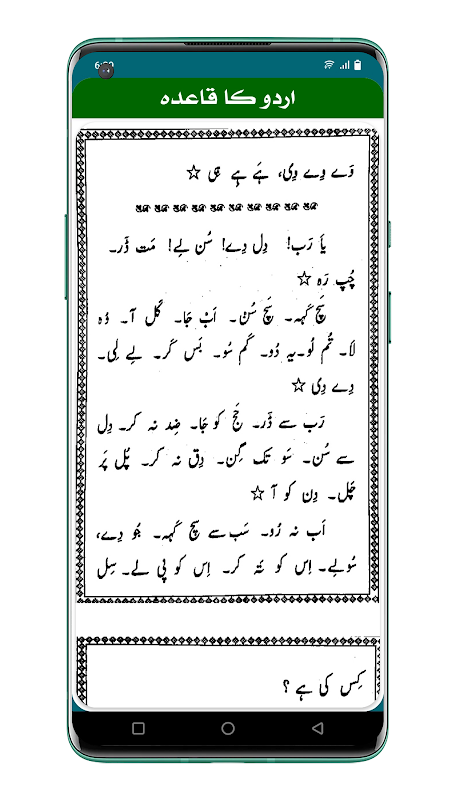 6:00
اردو کا قاعدہ
دَے دِے دِی، ہَے ہِے ہِی ☆
یَا رَب! دِل دِے! سُن لِے! مَت ڈَر۔
چُپ رَہ ☆
سَچ کَہہ۔ سَچ سُن۔ اَب جَا۔ کَل آ۔ وُہ
لَا۔ تُم لُو۔ یہ دُو۔ کَم سُو۔ بَس کَر۔ لِے لِی۔
دِے دِی ☆
رَب سے ڈَر۔ حَج کو جَا۔ ضِد نہ کر۔ دِل
سے سُن۔ سَو تک گِن۔ دِق نہ کر۔ پُل پَر
چَل۔ دِن کو آ ☆
اَب نہ رُو۔ سَب سے سچ کَہہ۔ جُو دِے،
سُولے۔ اِس کو تَہ کر۔ اِس کو پی لے۔ سِل
کِس کی ہے ؟